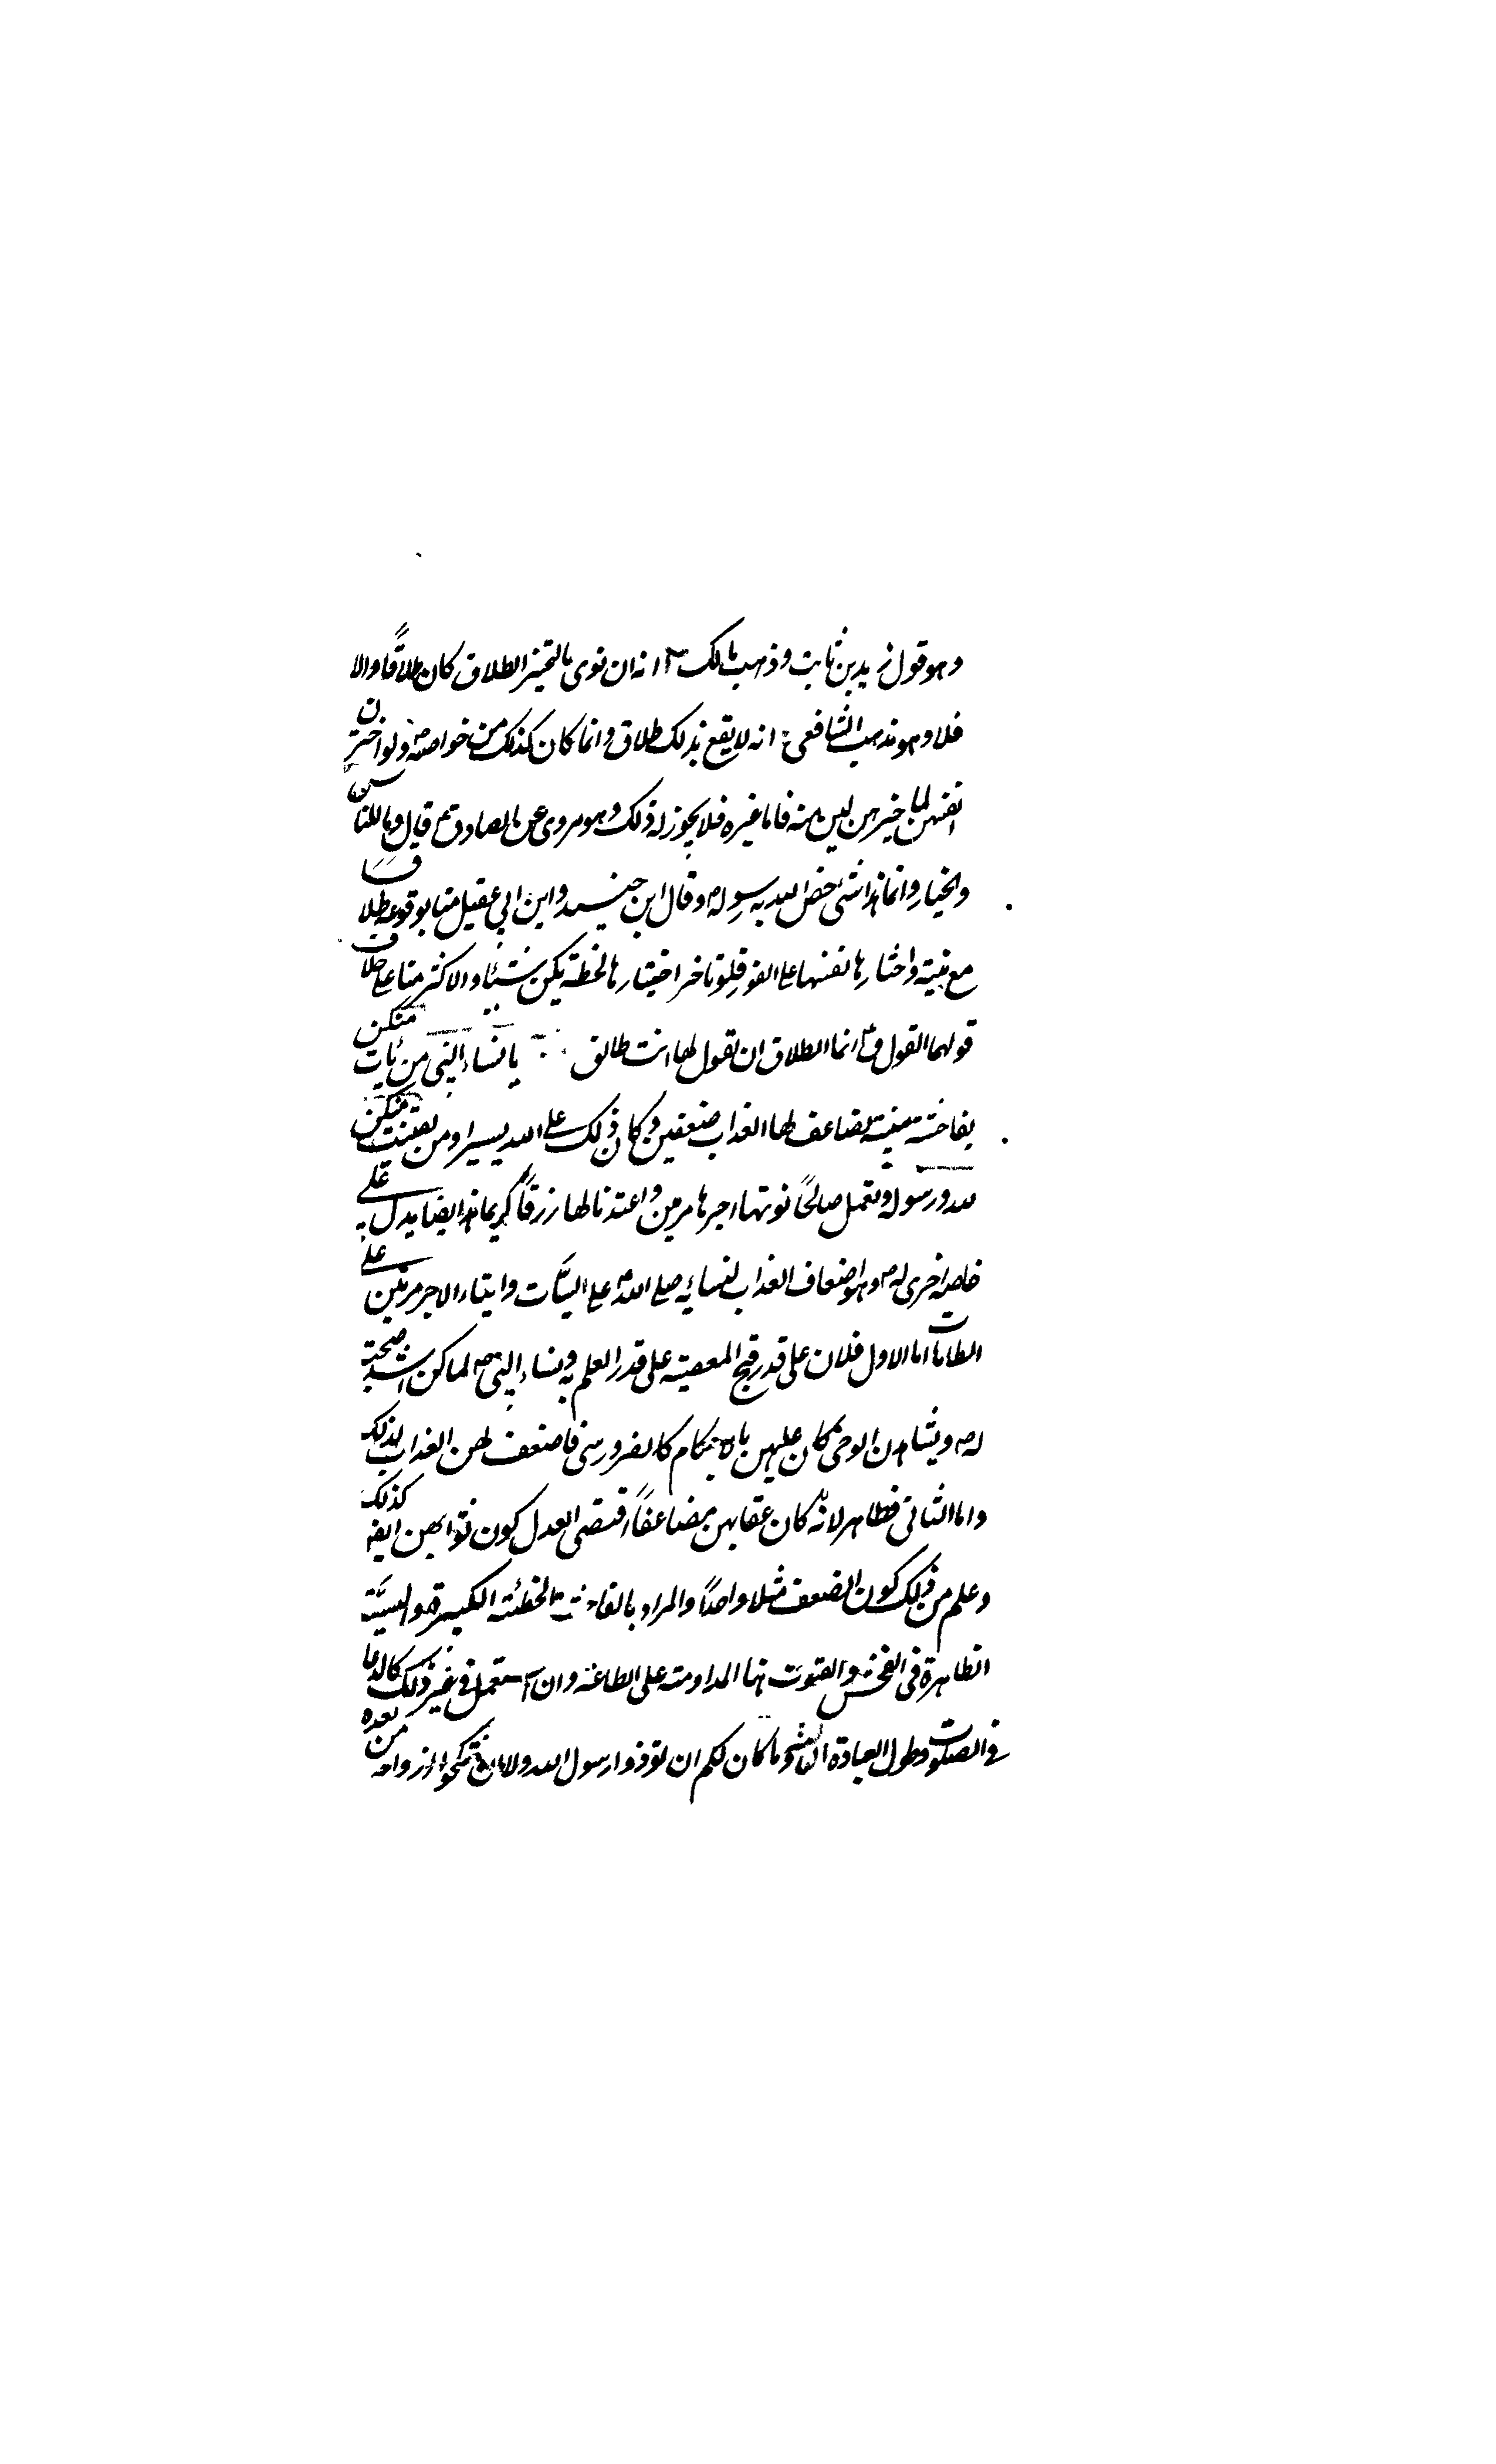 وهو قول زيد بن ثابت وذهب مالك انه ان نوى بالتخيير الطلاق كان طلاقًا والا
فلا وهو مذهب الشافعى انه لا يقع بذلك طلاق وانما كان كذلك من خواصه ص ولو اخترن
انفسهن لما خيرهن لبن منه فاما غيره فلا يجوز له ذلك وهو مروى عن الصادق ع قال وما للناس
والخيار وانما هذا شئ خص الله به رسوله ص وقال ابن جنيد وابن ابي عقيل منا بوقوعه طلاقا
مع نيته واختارها نفسها على الفور فلو تاخر اختيارها لحظة يكن شيئا والاكثر منا على خلاف
قولهما القول ق ع انما الطلاق ان تقول لها انت طالق يا نساء النبى من يات منكن
بفاحشة مبينة يضاعف لها العذاب ضعفين وكان ذلك على الله يسيرا ومن يقنت منكن
لله ورسوله وتعمل صالحًا نوتها اجرها مرتين واعتدنا لها رزقًا كريما هذا ايضا يدل على
خاصة اخرى له ص وهو اضعاف العذاب لنسائه صلى الله على السيّات وايتاء الاجر مرتين على
الطاعات اما الاول فلان على قدر قبح المعصية على قدر العلم به ونساء النبى ص لما كن اشد صحبة
له ص ويشاهدن الوحى كان علمهن بالاحكام كالضرورى فاضعف لهن العذاب لذلك
واما الثانى فظاهر لانّه كان عقابهن مضاعفًا اقتضى العدل كون ثوابهن ايضا كذلك
وعلم من ذلك كون الضعف مثلا واحدًا والمراد بالفاحشة الخطئة الكبيرة والسيّئة
الظاهرة فى الفحش والقنوت هنا المداومة على الطاعة وان استعمل فى غير ذلك كالدعا
فى الصلوت وطول العبادة وما كان لكم ان توذوا رسول الله ولا ان تنكحوا ازواجه من بعده